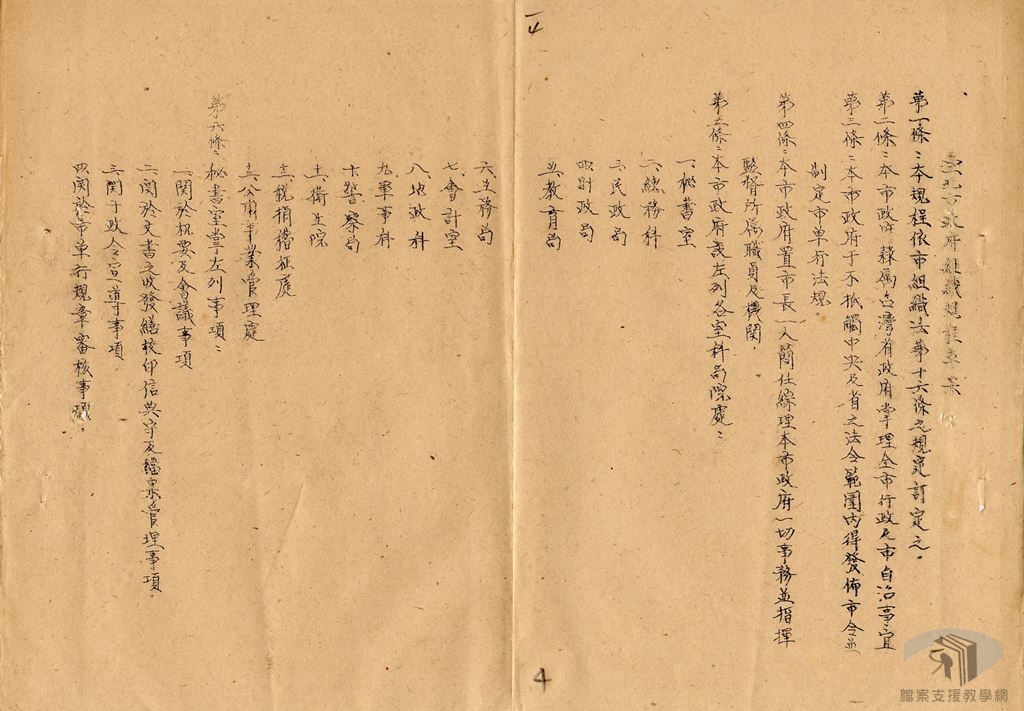 臺北市政府組織規程草案
第一條：本規程依市組織法第十六條之規定訂定之。
第二條：本市政府隸属台灣省政府掌理全市行政及市自治事宜
第三條：本市政府于不抵觸中央及省之法令範圍内得發佈市令並
制定市单行法規
第四條：本市政府置市長一人简任綜理本市政府一切事務並指揮
監督所属職員及機関．
第五條：本市政府設左列各室科局院處：
一、秘書室
二、總務科
三、民政局
四、財政局
五、教育局
六、工務局
七、會計室
八、地政科
九、軍事科
十、警察局
十一、衛生院
十二、稅捐稽征處
十三、公用事業管理處
第六條：秘書室掌左列事項：
一、関於机要及會議事項
二、関於文書之收發繕校印信典守及檔案管理事項。
三、関于政令宣導事項．
四、関於市单行規章審核事項．
4
4
檔案支援教學網